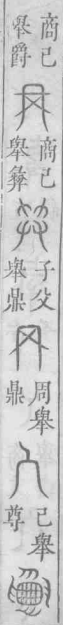 商己
舉爵
商己
舉彝
子父
舉鼎
周舉
鼎
己舉
尊